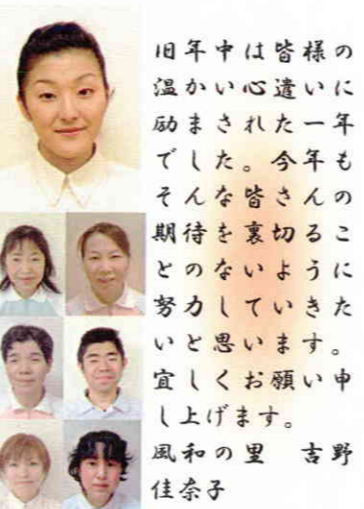 旧年中は皆様の
温かい心遣いに
励まされた一年
でした。今年も
そんな皆さんの
期待を裏切るこ
とのないように
努力していきた
いと思います。
宜しくお願い申
し上げます。
風和の里　吉野
佳奈子